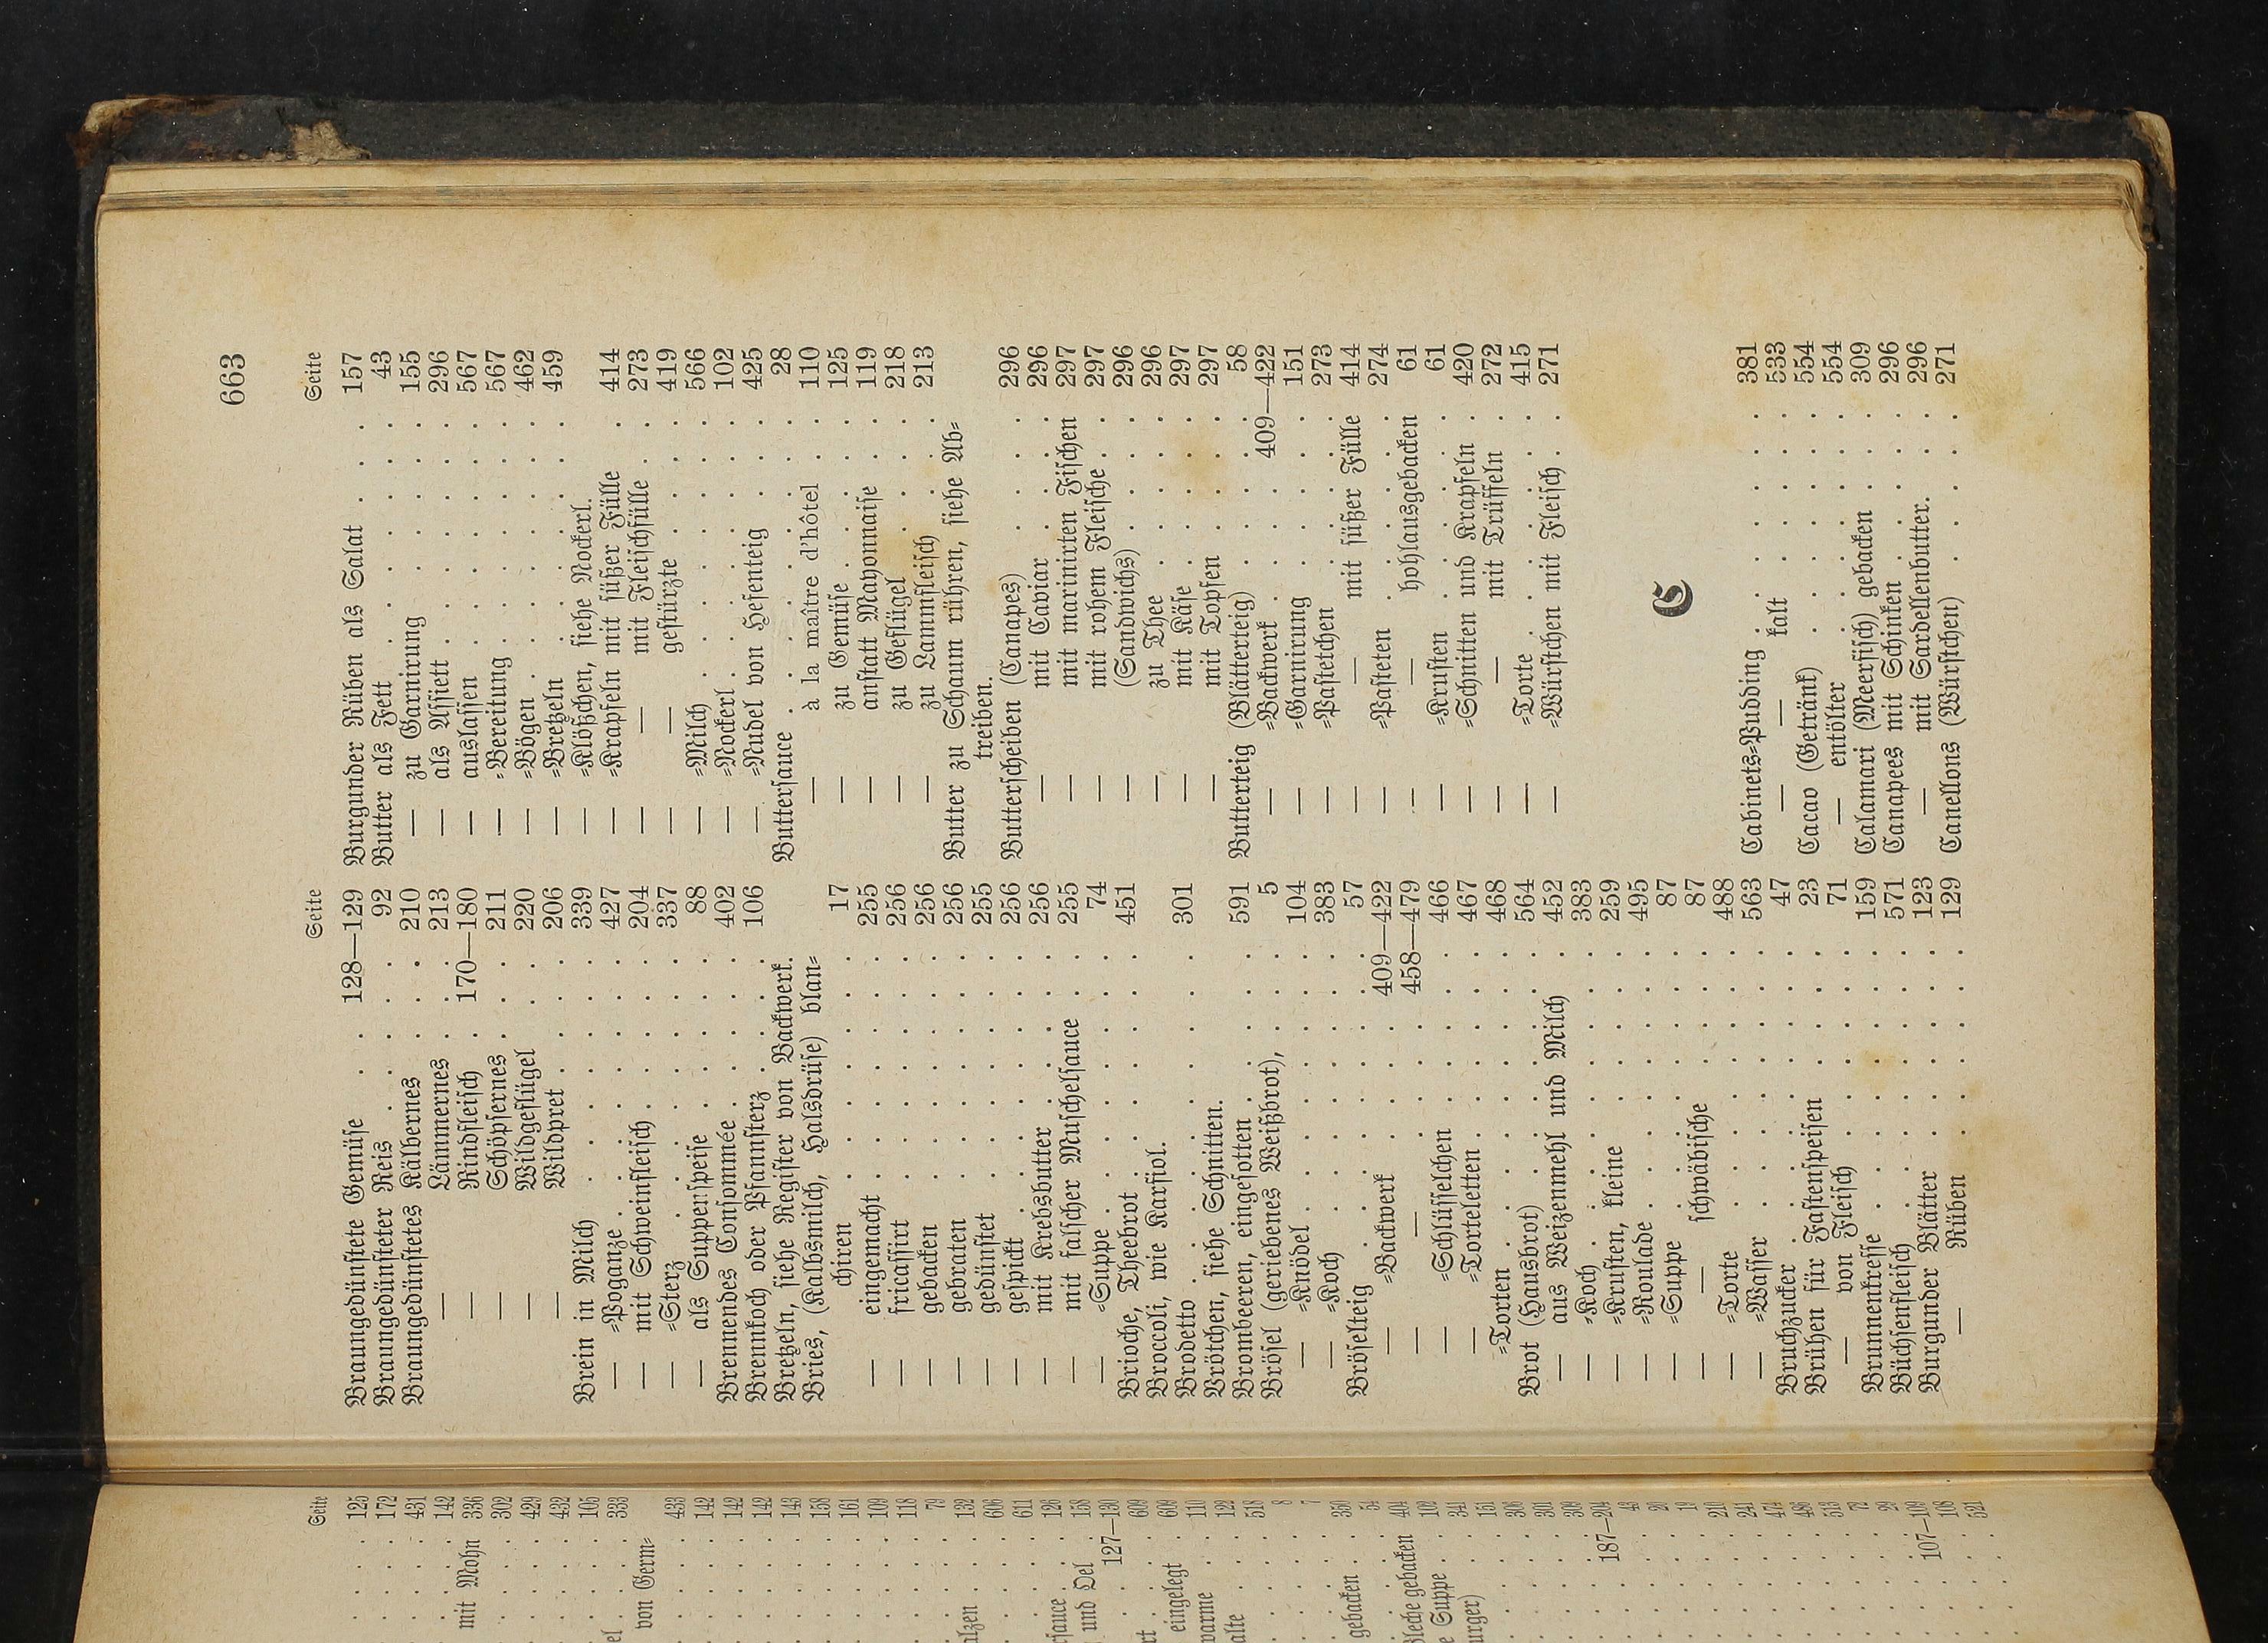 663
Seite
Braungedünstete Gemüse . . 128—129
Braungedünsteter Reis . . . . 92
Braungedünstetes Kälbernes . . . 210
— Lämmernes . . . 213
— Rindfleisch . 170—180
— Schöpsernes . . . 211
— Wildgeflügel . . . 220
— Wildpret . . . . 206
Brein in Milch . . . . . . . 339
— =Poganze . . . . . . . 427
— mit Schweinfleisch . . . . . 204
— =Sterz . . . . . . . . 337
— als Suppenspeise . . . . . 88
Brennendes Consommée . . . . . 402
Brennkoch oder Pfannsterz . . . . 106
Bretzeln, siehe Register von Backwerk.
Bries, (Kalbsmilch, Halsdrüse) blan=
chiren . . . . . . . 17
— eingemacht . . . . . . . 255
— fricassirt . . . . . . . 256
— gebacken . . . . . . . 256
— gebraten . . . . . . . 256
— gedünstet . . . . . . . 255
— gespickt . . . . . . . 256
— mit Krebsbutter . . . . . 256
— mit falscher Muschelsauce . . 255
— =Suppe . . . . . . . . 74
Brioche, Theebrot . . . . . . . 451
Broccoli, wie Karfiol.
Brodetto . . . . . . . . . 301
Brötchen, siehe Schnitten.
Brombeeren, eingesotten . . . . . 591
Brösel (geriebenes Weißbrot), . . . 5
— =Knödel . . . . . . . . 104
— =Koch . . . . . . . . 383
Bröselteig . . . . . . . . . 57
— =Backwerk . . . . . 409—422
— — . . . . . 458—479
— =Schlüsselchen . . . . . . 466
— =Torteletten . . . . . . 467
=Torten . . . . . . . . 468
Brot (Hausbrot) . . . . . . . 564
— aus Weizenmehl und Milch . . 452
— =Koch . . . . . . . . 383
— =Krusten, kleine . . . . . 259
— =Roulade . . . . . . . . 495
— =Suppe . . . . . . . . 87
— — schwäbische . . . . . 87
— =Torte . . . . . . . . 488
— =Wasser . . . . . . . . 563
Bruchzucker . . . . . . . . 47
Brühen für Fastenspeisen . . . . . 23
— von Fleisch . . . . . . 71
Brunnenkresse . . . . . . . . 159
Büchsenfleisch . . . . . . . . 571
Burgunder Blätter . . . . . . . 123
— Rüben . . . . . . . 129
Seite
Burgunder Rüben als Salat . . . . 157
Butter als Fett . . . . . . . . 43
— zu Garnirung . . . . . . 155
— als Assiett . . . . . . . 296
— auslassen . . . . . . . 567
— =Bereitung . . . . . . . 567
— =Bögen . . . . . . . . 462
— =Bretzeln . . . . . . . 459
— =Klößchen, siehe Nockerl.
— =Krapfeln mit süßer Fülle . . 414
— — mit Fleischfülle . . 273
— — gestürzte . . . . 419
— =Milch . . . . . . . . 566
— =Nockerl . . . . . . . . 102
— =Nudel von Hefenteig . . . . 425
Buttersauce . . . . . . . . . 28
— à la maître d'hôtel . . . 110
— zu Gemüse . . . . . . 125
— anstatt Mayonnaise . . . 119
— zu Geflügel . . . . . 218
— zu Lammfleisch . . . . 213
Butter zu Schaum rühren, siehe Ab=
treiben.
Butterscheiben (Canapes) . . . . . 296
— mit Caviar . . . . . 296
— mit marinirten Fischen 297
— mit rohem Fleische . . 297
— (Sandwichs) . . . . 296
— zu Thee . . . . . . 296
— mit Käse . . . . . 297
— mit Topfen . . . . 297
Butterteig (Blätterteig) . . . . . 58
— =Backwerk . . . . 409—422
— =Garnirung . . . . . 151
— =Pastetchen . . . . . 273
— — mit süßer Fülle 414
— =Pasteten . . . . . . 274
— — hohlausgebacken 61
— =Krusten . . . . . . 61
— =Schnitten und Krapfeln . 420
— — mit Trüffeln . 272
— =Torte . . . . . . 415
— =Würstchen mit Fleisch . . 271
C
Cabinets=Pudding . . . . . . . 381
— — kalt . . . . . 533
Cacao (Getränk) . . . . . . . 554
— entölter . . . . . . . . 554
Calamari (Meerfisch) gebacken . . . 309
Canapees mit Schinken . . . . . 296
— mit Sardellenbutter. . . . 296
Canellons (Würstchen) . . . . . 271
Seite
125
172
431
142
mit Mohn 336
302
429
432
105
333
von Germ=
433
142
142
142
143
158
161
109
118
79
132
606
611
126
158
und Oel 127—130
609
eingelegt 609
110
122
518
8
7
gebacken . 350
54
Bleche gebacken 404
e Suppe . 102
341
151
306
301
309
187—204
43
20
19
210
241
474
486
513
72
29
107—109
108
521